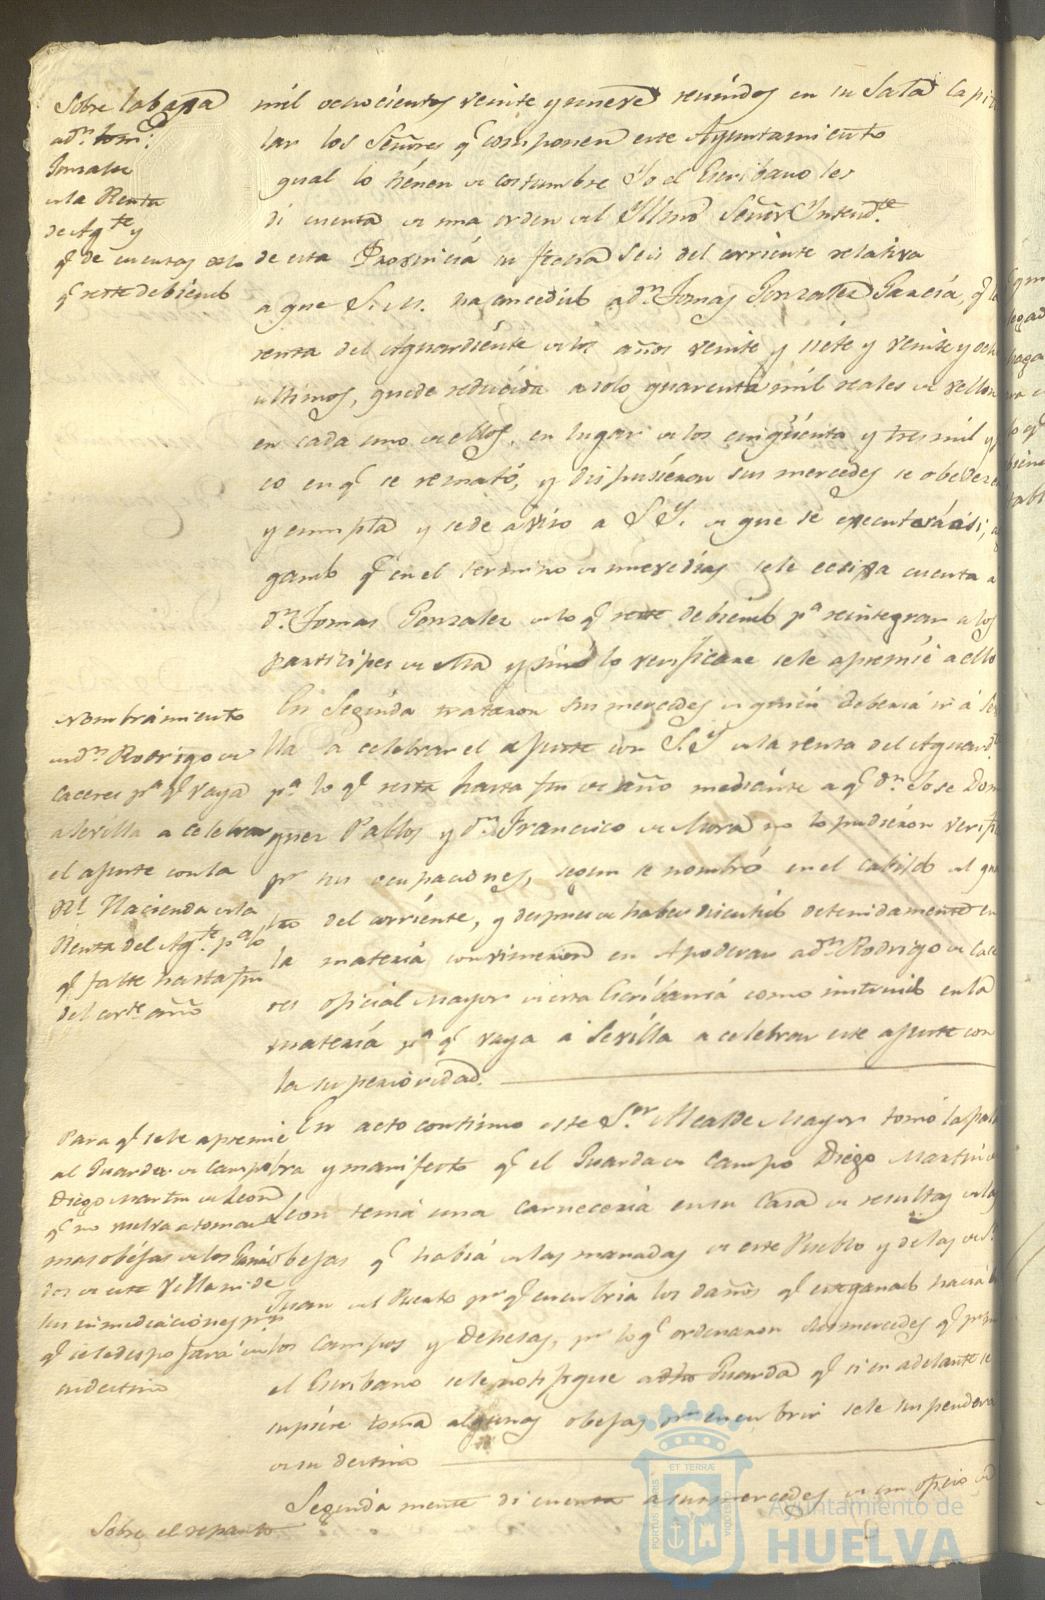 Sobre la baja
a Dn. Tom.
Gonzalez
en la Renta
de Agte. y
q. de cuentas de lo
q. reste debiendo
mil ochocientos veinte y nueve reunidos en su Sala Capitu
lar los Señores q. componen este Ayuntamiento
qual lo tienen de costumbre Yo el Escribano les
di cuenta de una orden del Yllmo. Señor Intendte.
de esta Provincia su fecha seis del corriente relativa
a que S. M. ha concedido a Dn. Tomas Gonzalez Garcia, q. la
renta del Aguardiente de los años veinte y siete y veinte y ocho
ultimos, quede reducida a solo quarenta mil reales de vellon
en cada uno de ellos, en lugar de los cinqüenta y tres mil y
co en q. se remató, y dispusieron sus mercedes se obedezca
y cumpla y se de aviso a S. Y. de que se executará asi,
gando q. en el termino de nueve dias se le exija cuenta a
Dn. Tomas Gonzalez de lo q. reste debiendo pa. reintegrar a los
participes de ella y sino lo verificare se le apremie a ello
Nombramiento
en Dn. Rodrigo de
Caceres pa. q. vaya
a Sevilla a celebrar
el ajuste con la
Rl. Hacienda de la
Renta del Agte. pa. lo
q. falte hasta fin
del corte. año
En Seguida trataron sus mercedes de quien deberia ir á Sevi
lla a celebrar el ajuste con S. Y. de la renta del Aguardte.
pa. lo q. resta hasta fin de año mediante a q. Dn. Jose Domin
guez Pallos y Dn. Francisco de Mora no lo pudieron verifi
pr. sus ocupaciones, segun se nombró en el cabildo del qua
tro del corriente, y despues de haber discutido detenidamente en
la materia convinieron en Apoderar a Dn. Rodrigo de Cace
res oficial Mayor de esta Escribania como instruido en la
materia pa. q. vaya a Sevilla a celebrar este ajuste con
la superioridad.
Para q. se le apremie
al Guarda de campo
Diego Martin de Leon
q. no vuelva a tomar
mas obejas de los Gana
dos de esta Villa ni de
sus inmediaciones pues
q. se le despojará de
su destino
En acto continuo este Sor. Alcalde Mayor tomó la pala
bra y manifestó q. el Guarda de campo Diego Martin de
Leon tenia una carneceria en su Casa de resultas de las
obejas q. habia de las manadas de este Pueblo y de las de Sn.
Juan del Puerto pr. q. encubria los daños q. el ganado hacia
los campos y Dehesas, pr. lo q. ordenaron sus mercedes q. pr. mi
el Escribano se le notifique a dho Guarda q. si en adelante se
supiere toma algunas obejas pr. encubrir se le suspenderá
de su destino
Sobre el reparto
Segundamente di cuenta a sus mercedes de un oficio del
Ayuntamiento de
HUELVA
PORTUS MARIS
ET TERRÆ
CUSTODIA